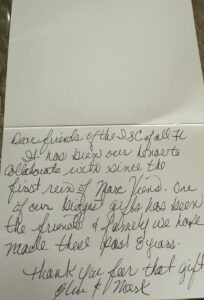 Dear friends of the DSC of all FL
It has been our honor to
collaborate with since the
first rein of Marc Viens. One
of our biggest gifts has been
the friends & family we have
made these past 8 years.
Thank you for that gift
& Mark